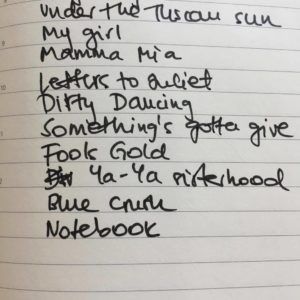 Under the Tuscan sun
My girl
Mamma Mia
Letters to Juliet
Dirty Dancing
Something's gotta give
Fools Gold
Ya-Ya sisterhood
Blue Crush
Notebook